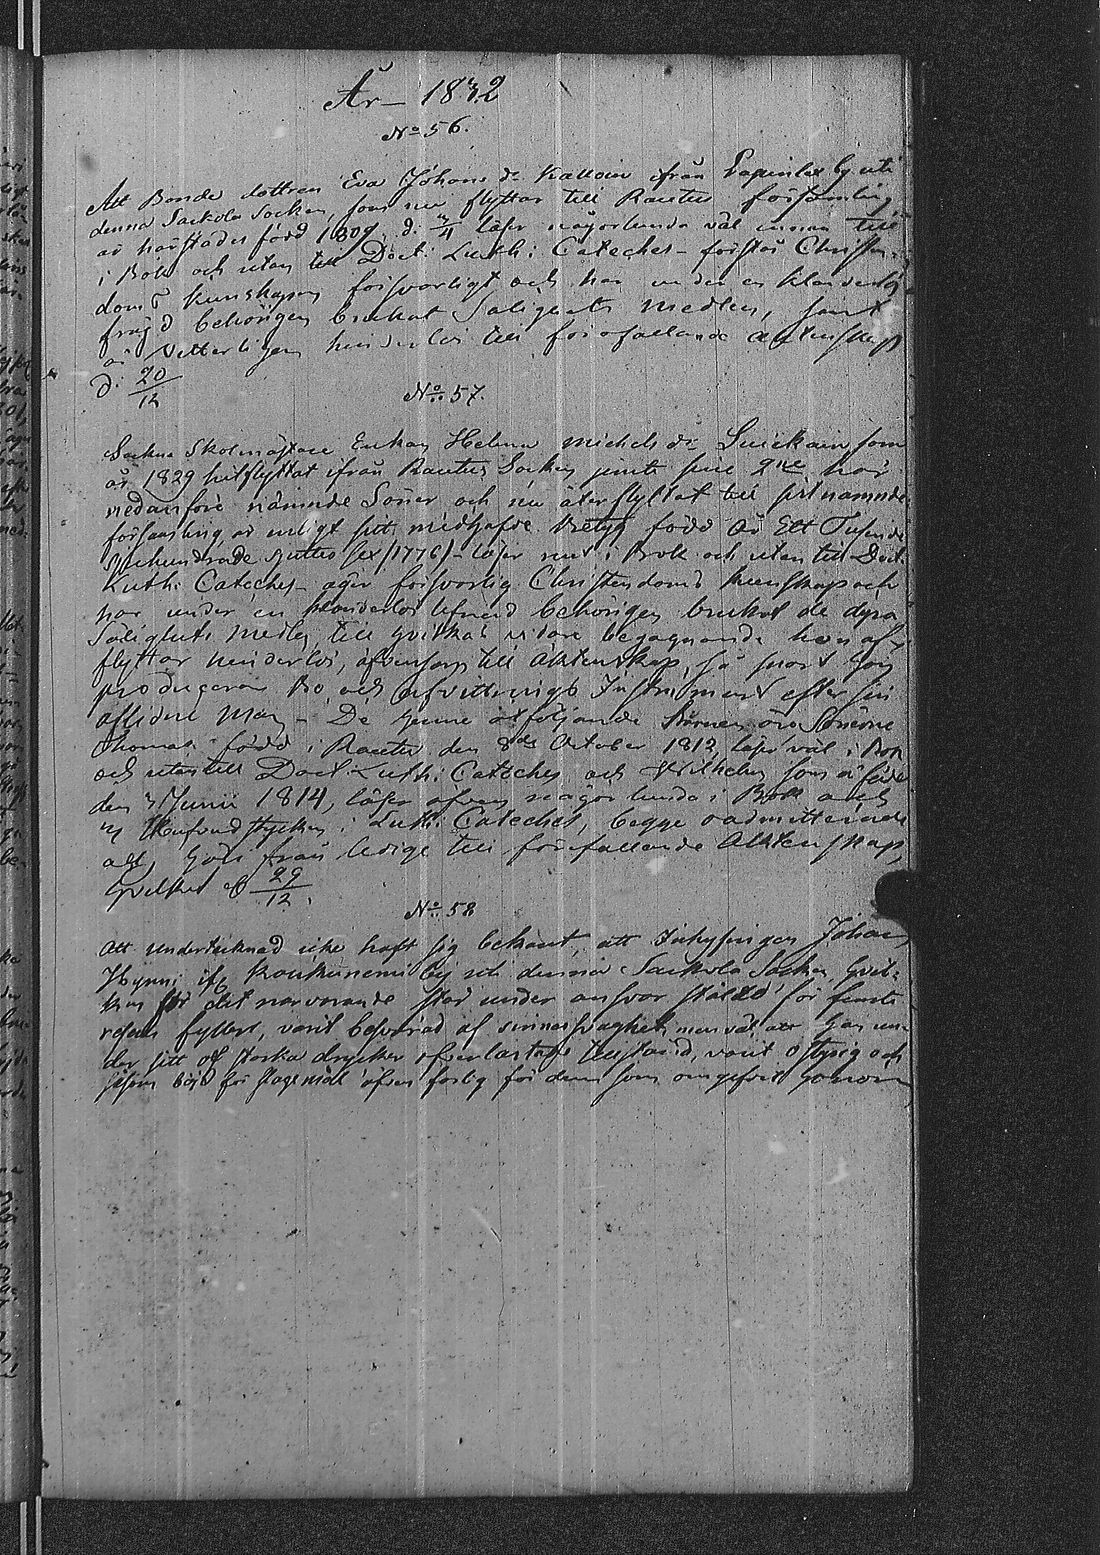 År 1832
No 56.
Att Bonde dottren Eva Johans dr Kalloin ifrån Lapinlax by uti
denna Sackola Socken, som nu flyttar till Rautus församling
är härstädes född 1809, d. 4 läser någorlunda väl innan till
i Bok och utan till Doct. Luth: Cateches förstår Christen-
doms kunskapen försvarligt och har under en klanderlös
frägd behörigen brukat Salighets medlen, samt
är vetterligen hinderlös till förefallande äktenskap
d. 20/12
No 57.
Sockne Skolmästare Enkan Helena Michels dr Suickain, som
år 1829 hitflyttat ifrån Rautus Socken jemte sine 2ne här
nedanföre nämnde Söner och nu återflyttat till sist nämnde
församling är enligt sitt medhafde Betyg född År Ett Tusende
Sjuhundrade Sjuttio sex (1776) läser nu i Bok och utan till Doct.
Luth: Cateches äger försvarlig Christendoms kunskap och
har under en klanderlös lefnad behörigen brukat de dyra
Salighets medlen till hvilkas vidare begagnande hon af-
flyttar hinderlös, äfvensom till Äktenskap, så snart hon
producerar Bo och afvittrings Instrument efter sin
aflidne Man. De henne åtföljande Barnen äro Sönerne
Thomas född i Rautus den 8de October 1812, läser väl i Bok
och utantill Doct. Luth: Cateches och Wilhelm som är född
den 3 Junii 1814, läser äfven någorlunda i Bok och
Hufvudstycken i Luth: Cateches, begge oadmitterade
all, Gods från ledige till förefallande Äktenskap,
hvilket 29/12.
No 58
Att undertecknad icke haft sig bekant, att Inhysingen Johan
Hynni ifr. Koukunemi by uti denna Sackola Socken, hvil-
ken för det närvarande står under ansvar ställd för
fylleri, varit besvärad af sinnessvaghet, men väl att han un-
der sitt af starka drycker öfverlastade tillstånd, varit ostyrig och
såsom böjd för slagsmål äfven farlig för dem som omgifvit honom